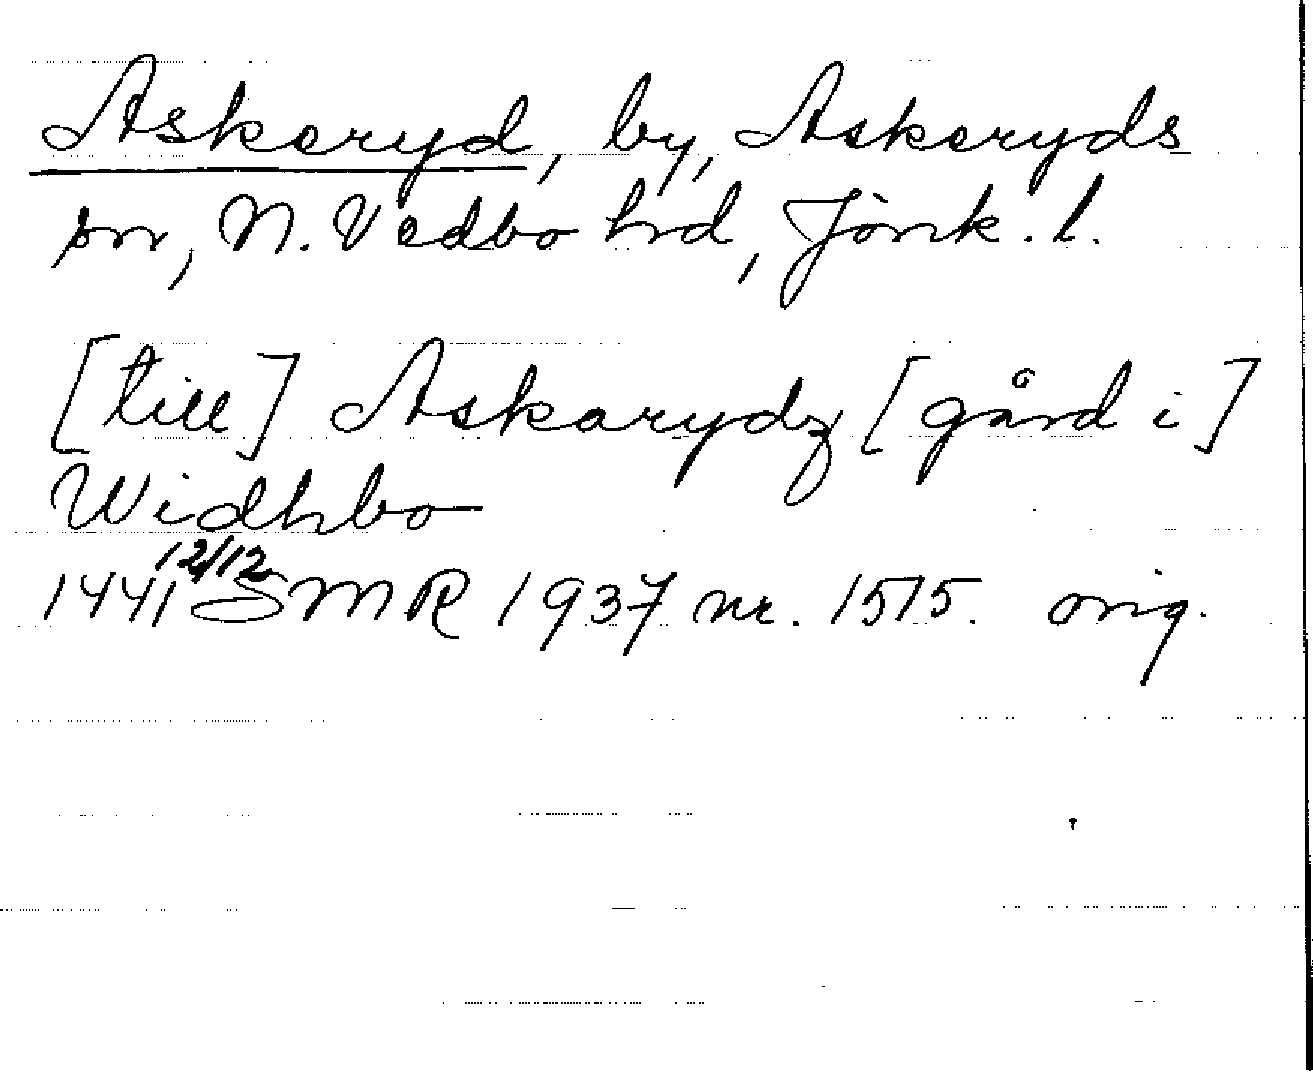 Askeryd, by, Askeryds
sn, N. Vedbo hrd, Jönk. l.
[till] Askarydz [gård i]
Widhbo
1441 12/12 SMR 1937 nr. 1515. orig.